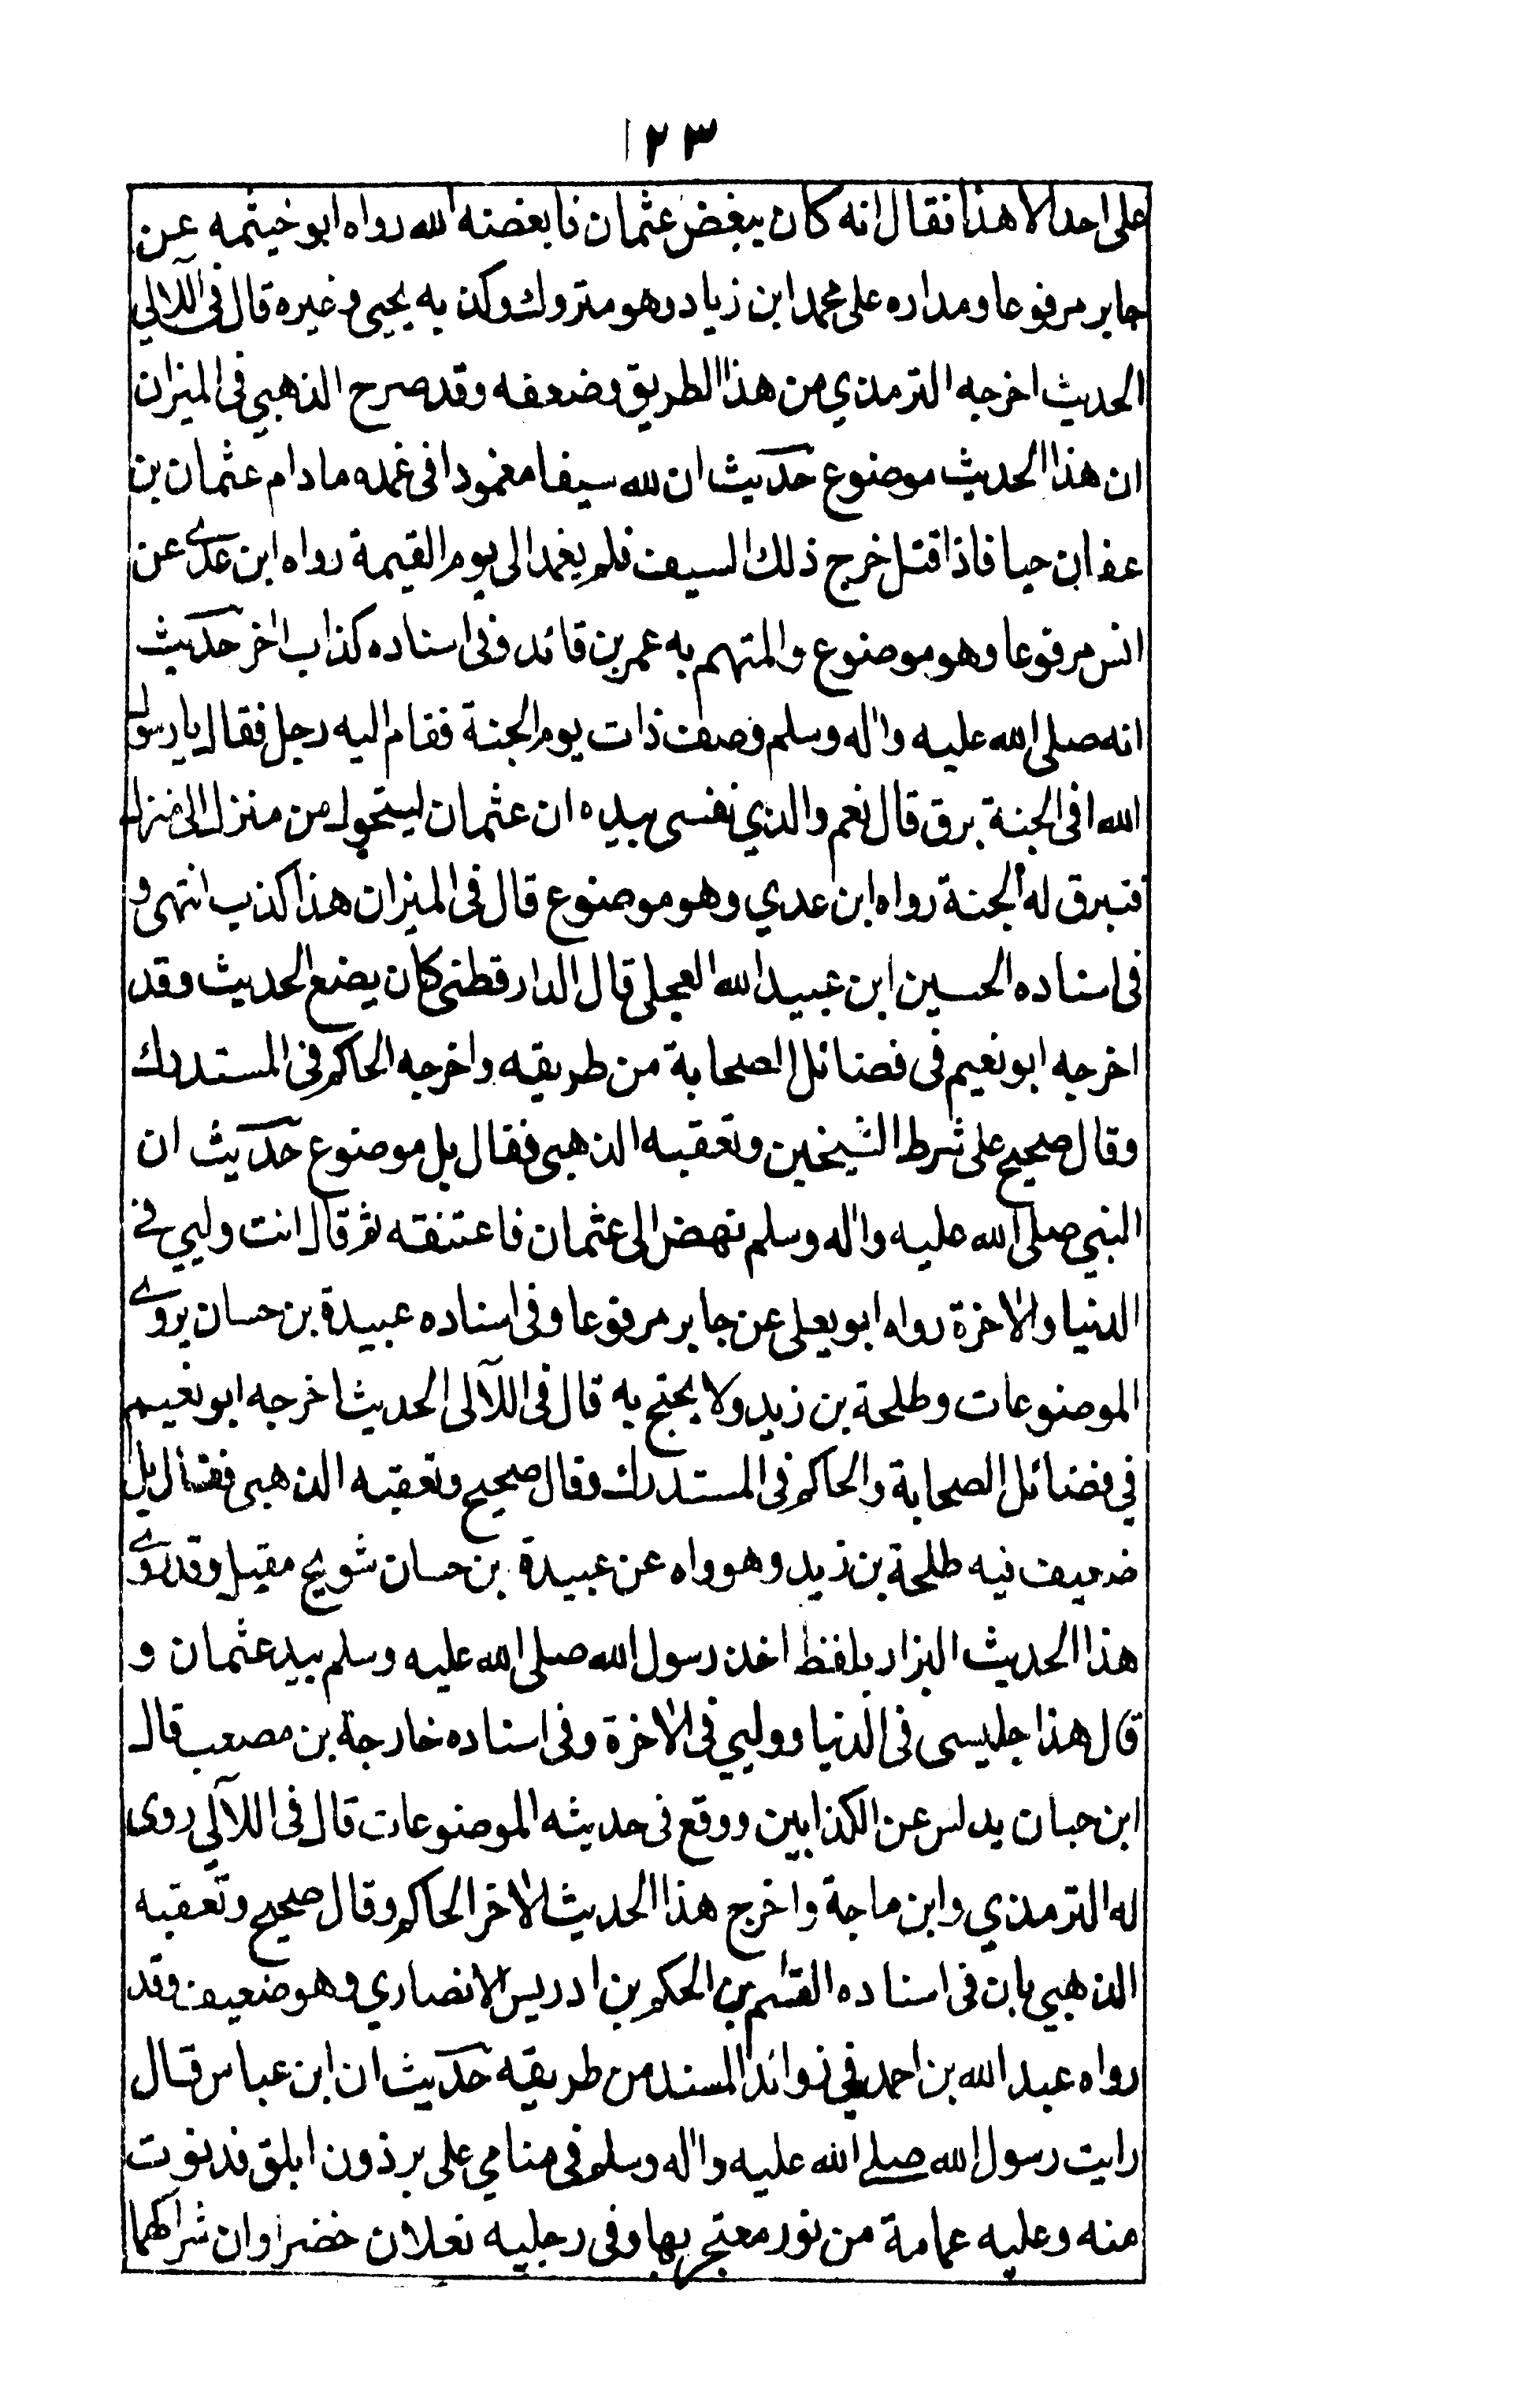 ١٢٣
على احد الا هذا فقال انه كان يبغض عثمان فابغضته الله رواه ابو خيثمه عن
جابر مرفوعا ومداره على محمد ابن زياد وهو متروك وكذ به يحيى وغيره قال فى اللآلي
الحديث اخرجه الترمذي من هذا الطريق وضعفه وقد صرح الذهبي فى الميزان
ان هذا الحديث موضوع حديث ان لله سيفا مغمودا فى غمده ما دام عثمان بن
عفان حيا فاذا قتل خرج ذلك السيف فلم يغمد الى يوم القيمة رواه ابن عدى عن
انس مرفوعا وهو موضوع والمتهم به عمر بن قائد وفى اسناده كذاب اخر حديث
انه صلى الله عليه واله وسلم وصف ذات يوم الجنة فقام اليه رجل فقال يا رسول
الله افى الجنة برق قال نعم والذي نفسى بيده ان عثمان ليتحول من منزل الى منزل
فتبرق له الجنة رواه ابن عدي وهو موضوع قال فى الميزان هذا كذب انتهى و
فى اسناده الحسين ابن عبيد الله العجلى قال الدارقطنى كان يضع الحديث وقد
اخرجه ابو نعيم فى فضائل الصحابة من طريقه واخرجه الحاكم فى المستدرك
وقال صحيح على شرط الشيخين وتعقبه الذهبى فقال بل موضوع حديث ان
النبي صلى الله عليه واله وسلم نهض الى عثمان فاعتنقه ثم قال انت وليي فى
الدنيا والاخرة رواه ابو يعلى عن جابر مرفوعا وفى اسناده عبيدة بن حسان يروى
الموضوعات وطلحة بن زيد ولا يحتج به قال فى اللآلى الحديث اخرجه ابو نعيم
في فضائل الصحابة والحاكم فى المستدرك وقال صحيح وتعقبه الذهبى فقال بل
ضعيف فيه طلحة بن زيد وهو واه عن عبيدة بن حسان شويخ مقيل وقد روى
هذا الحديث البزار بلفظ اخذ رسول الله صلى الله عليه وسلم بيد عثمان و
قال هذا جليسى فى الدنيا ووليي فى الاخرة وفى اسناده خارجة بن مصعب قال
ابن حبان يدلس عن الكذابين ووقع فى حديثه الموضوعات قال فى اللآلي روى
له الترمذي وابن ماجة واخرج هذا الحديث الاخر الحاكم وقال صحيح وتعقبه
الذهبي بان فى اسناده القاسم بن الحكم بن ادريس الانصاري وهو ضعيف وقد
رواه عبد الله بن احمد في زوائد المسند من طريقه حديث ان ابن عباس قال
رايت رسول الله صلى الله عليه واله وسلم فى منامي على برذون ابلق فدنوت
منه وعليه عمامة من نور معتجر بها وفى رجليه نعلان خضراوان شراكهما